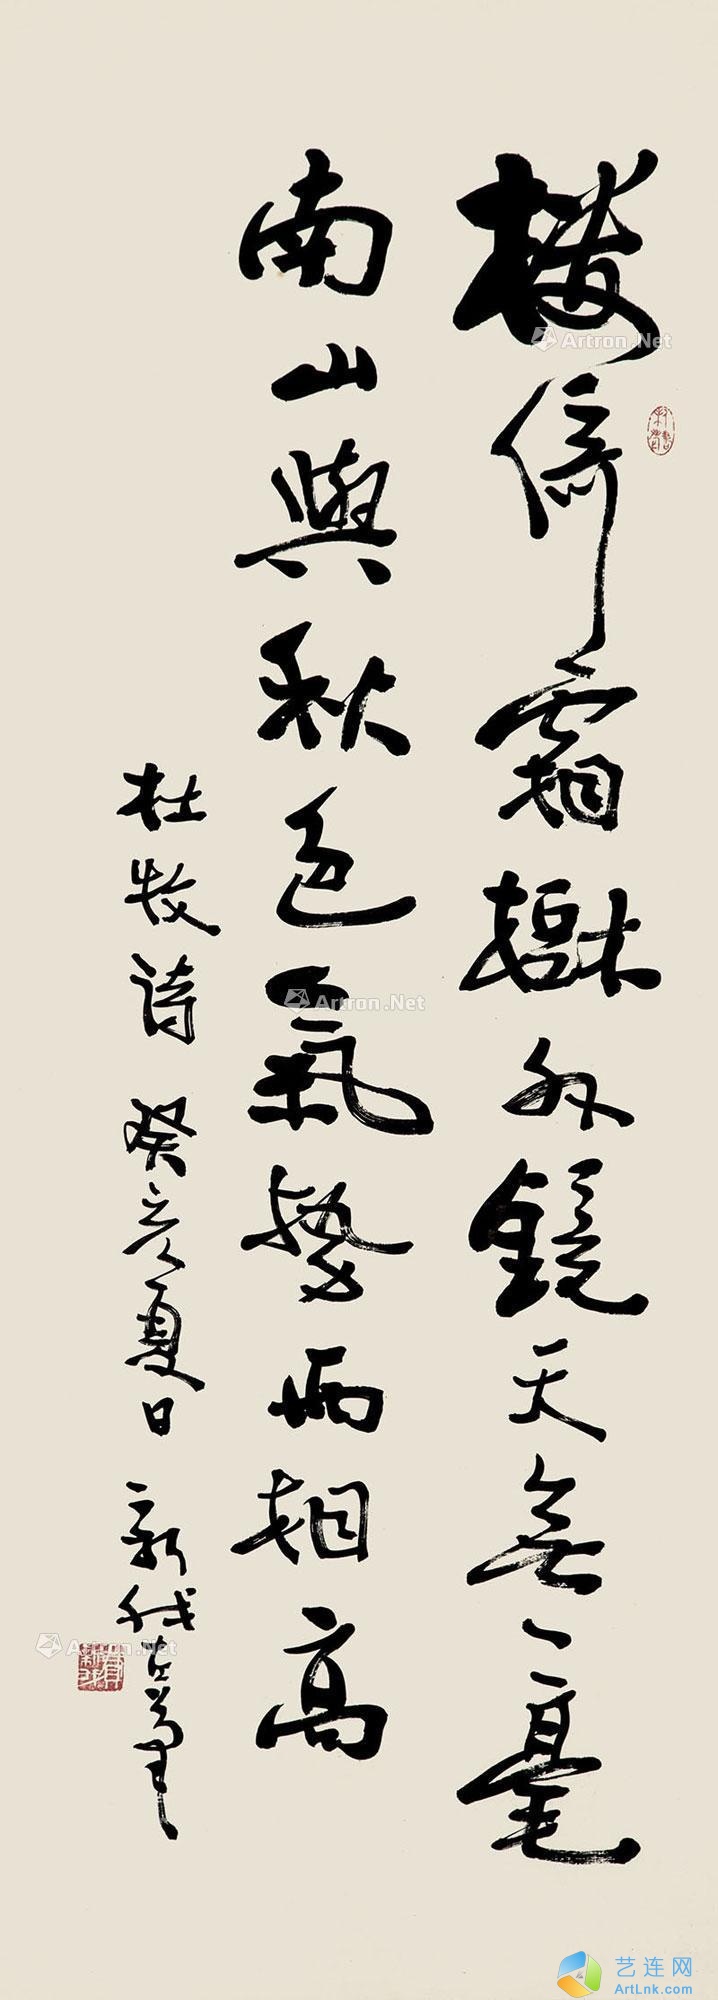 樓倚霜樹外鏡天無一毫
南山與秋色氣勢兩相高
杜牧诗 癸亥夏日 新我左筆
Artron.Net
Artron.Net
Artron.Net
艺连网
ArtLnk.com